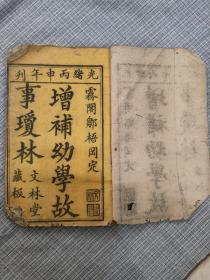 光緒丙申年刊
霧閣鄒梧岡定
增補幼學故
事瓊林
文林堂
藏板